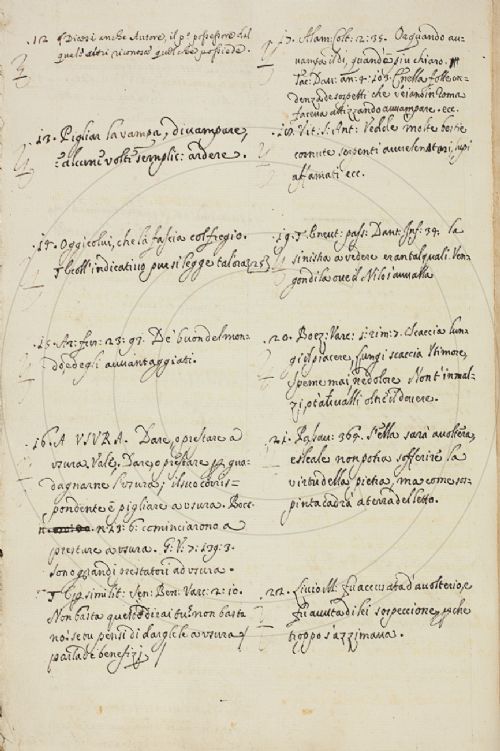 .12. Dicesi anche Autore, il p.º possessore dal
quale altri riconosce quel che possiede.
.13. Pigliar la vampa, divampare,
alcune volte semplic: ardere.
.14. Oggi colui, che la fascia col fregio.
coll'indicativo pure si legge talora
.15. Ar: fur: 23: 97. De' buon del mon-
do, e degli avvantaggiati.
.16. A VSVRA. Dare, o prestare a
vsura. Vale, Dare, o prestare per gua-
dagnarne l'vsura; il suo corris-
pondente è pigliare a vsura. Bocc.
n: 23: 6: cominciarono a
prestare a vsura. G: V: 7: 139: 3.
sono grandi prestatori ad vsura.
Per similit: Sen: Ben: Varc: 2: 10.
Non basta questo direi tu? non basta
no: se tu pensi di dargliele a vsura
parla de benefizj
.17. Alam: Colt: 2: 35. Or quando av-
vampa il dì, quand'è più chiaro.
Tac: Dav: an: 4: 103:
denza de sospetti che veiano in Roma
faceva attizzando avvampare. ecc.
.18. Vit: S: Ant: Vedde molte bestie
cornute serpenti avvelenatari, lupi
affamati ecc.
.19. Dant: Inf: 34. la
sinistra a vedere era tal quali Ven-
gon di là ove il Nilo s'avvalla
.20. Boez: Varc: 1: rim: 7. Scaccia lun-
gi 'l piacere, lungi scaccia il timore,
speme mai, nè dolore Non t'innal-
zi, o t'avvalli oltre il dovere.
.21. 369. S'ella sarà avoltera,
e sleale non potia sofferire la
virtù della pietra, ma come sos-
pinta cadrà a terra del letto.
.22. Livio M. fu accusata d'avolterio, e
fu avuta di lei sospeccione, perche
troppo s'azzimava.